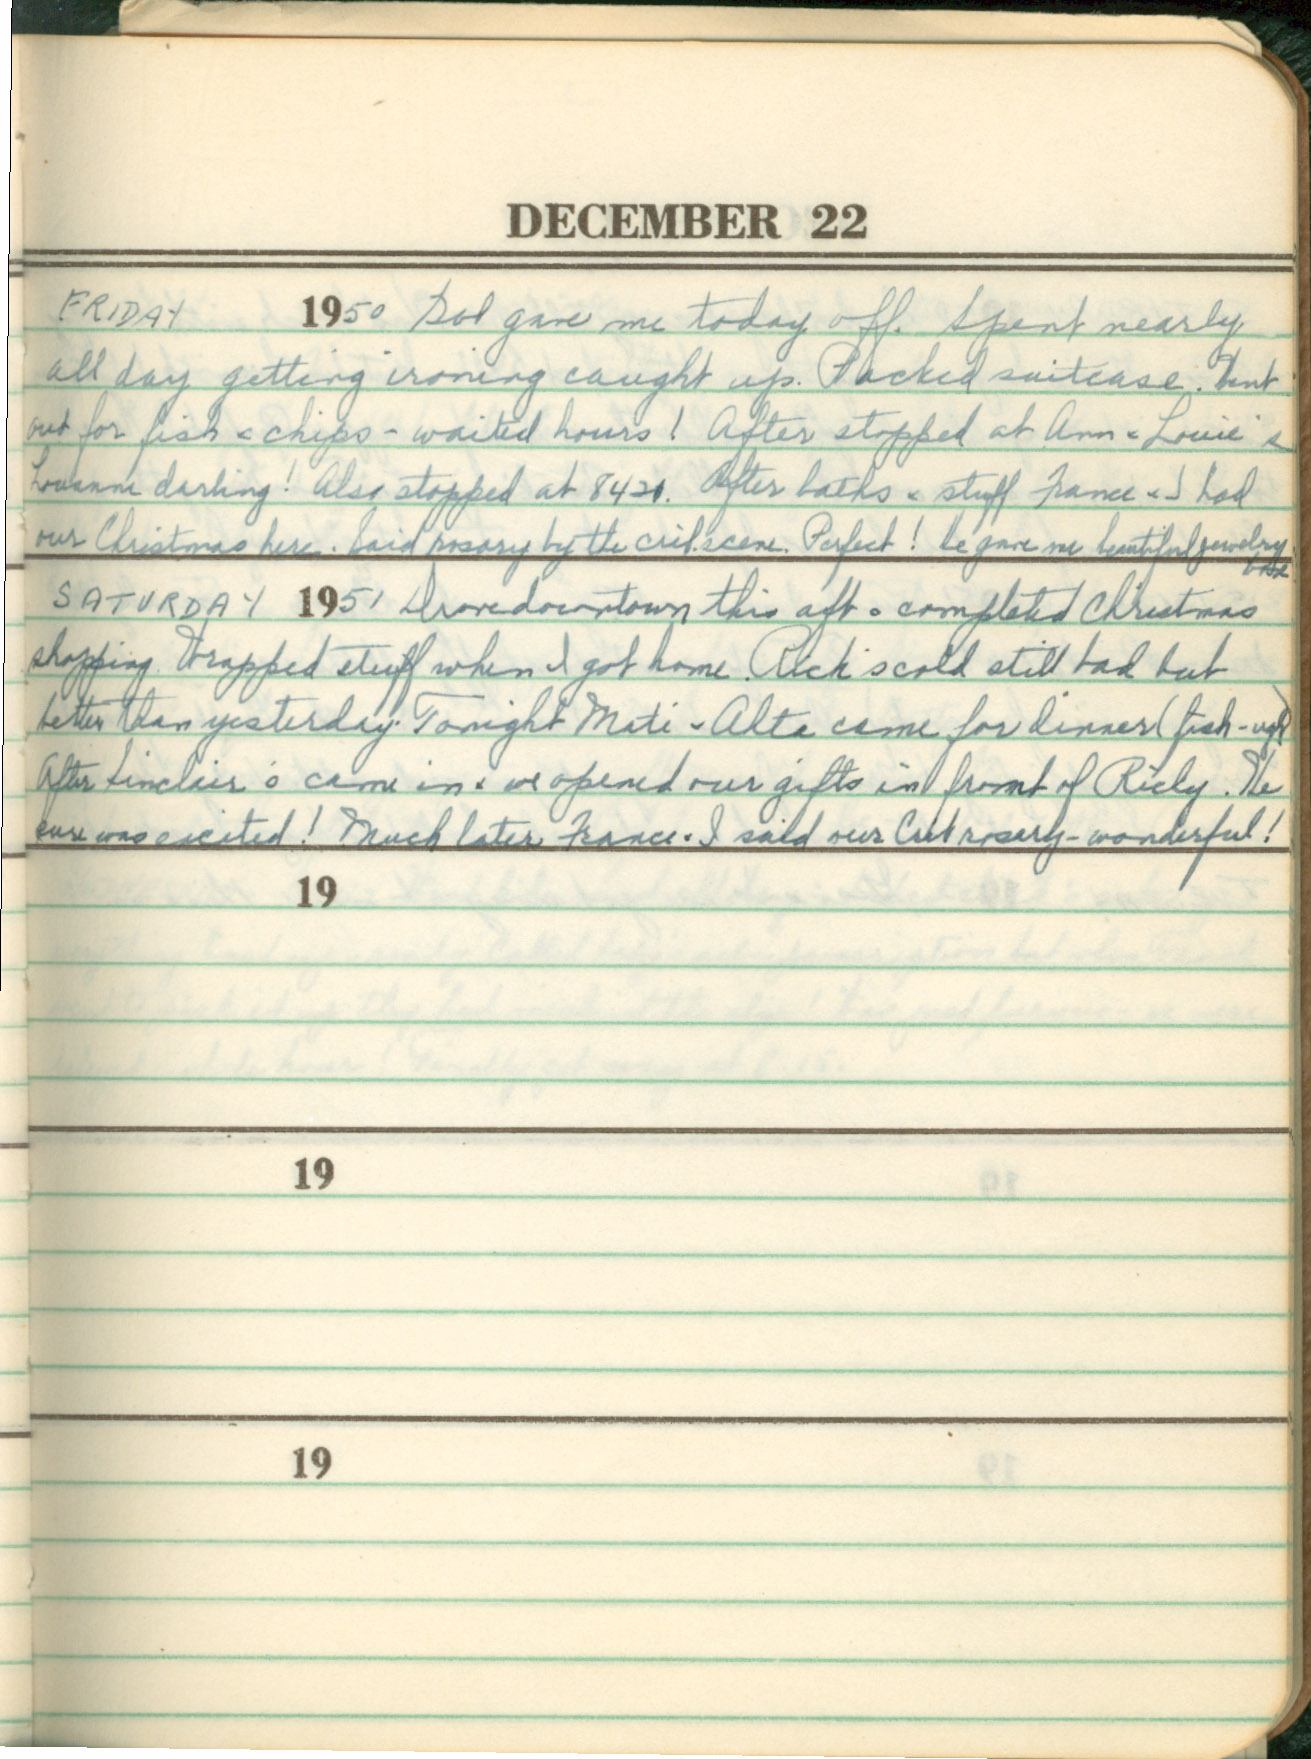 DECEMBER 22
FRIDAY 1950 Sol gave me today off. Spent nearly
all day getting ironing caught up. Packed suitcase. Went
out for fish & chips - waited hours! After stopped at Ann & Louie's
Louanne darling! Also stopped at 8420. After baths & stuff France & I had
our Christmas here. Said rosary by the crib scene. Perfect! He gave me beautiful jewelry
box
SATURDAY 1951 Drove downtown this aft & completed Christmas
shopping. Wrapped stuff when I got home. Rick's cold still bad but
better than yesterday. Tonight Mati & Alta came for dinner (fish - ugh)
After Sinclair's came in & we opened our gifts in front of Ricky. He
sure was excited! Much later France & I said our Crib rosary - wonderful!
19
19
19